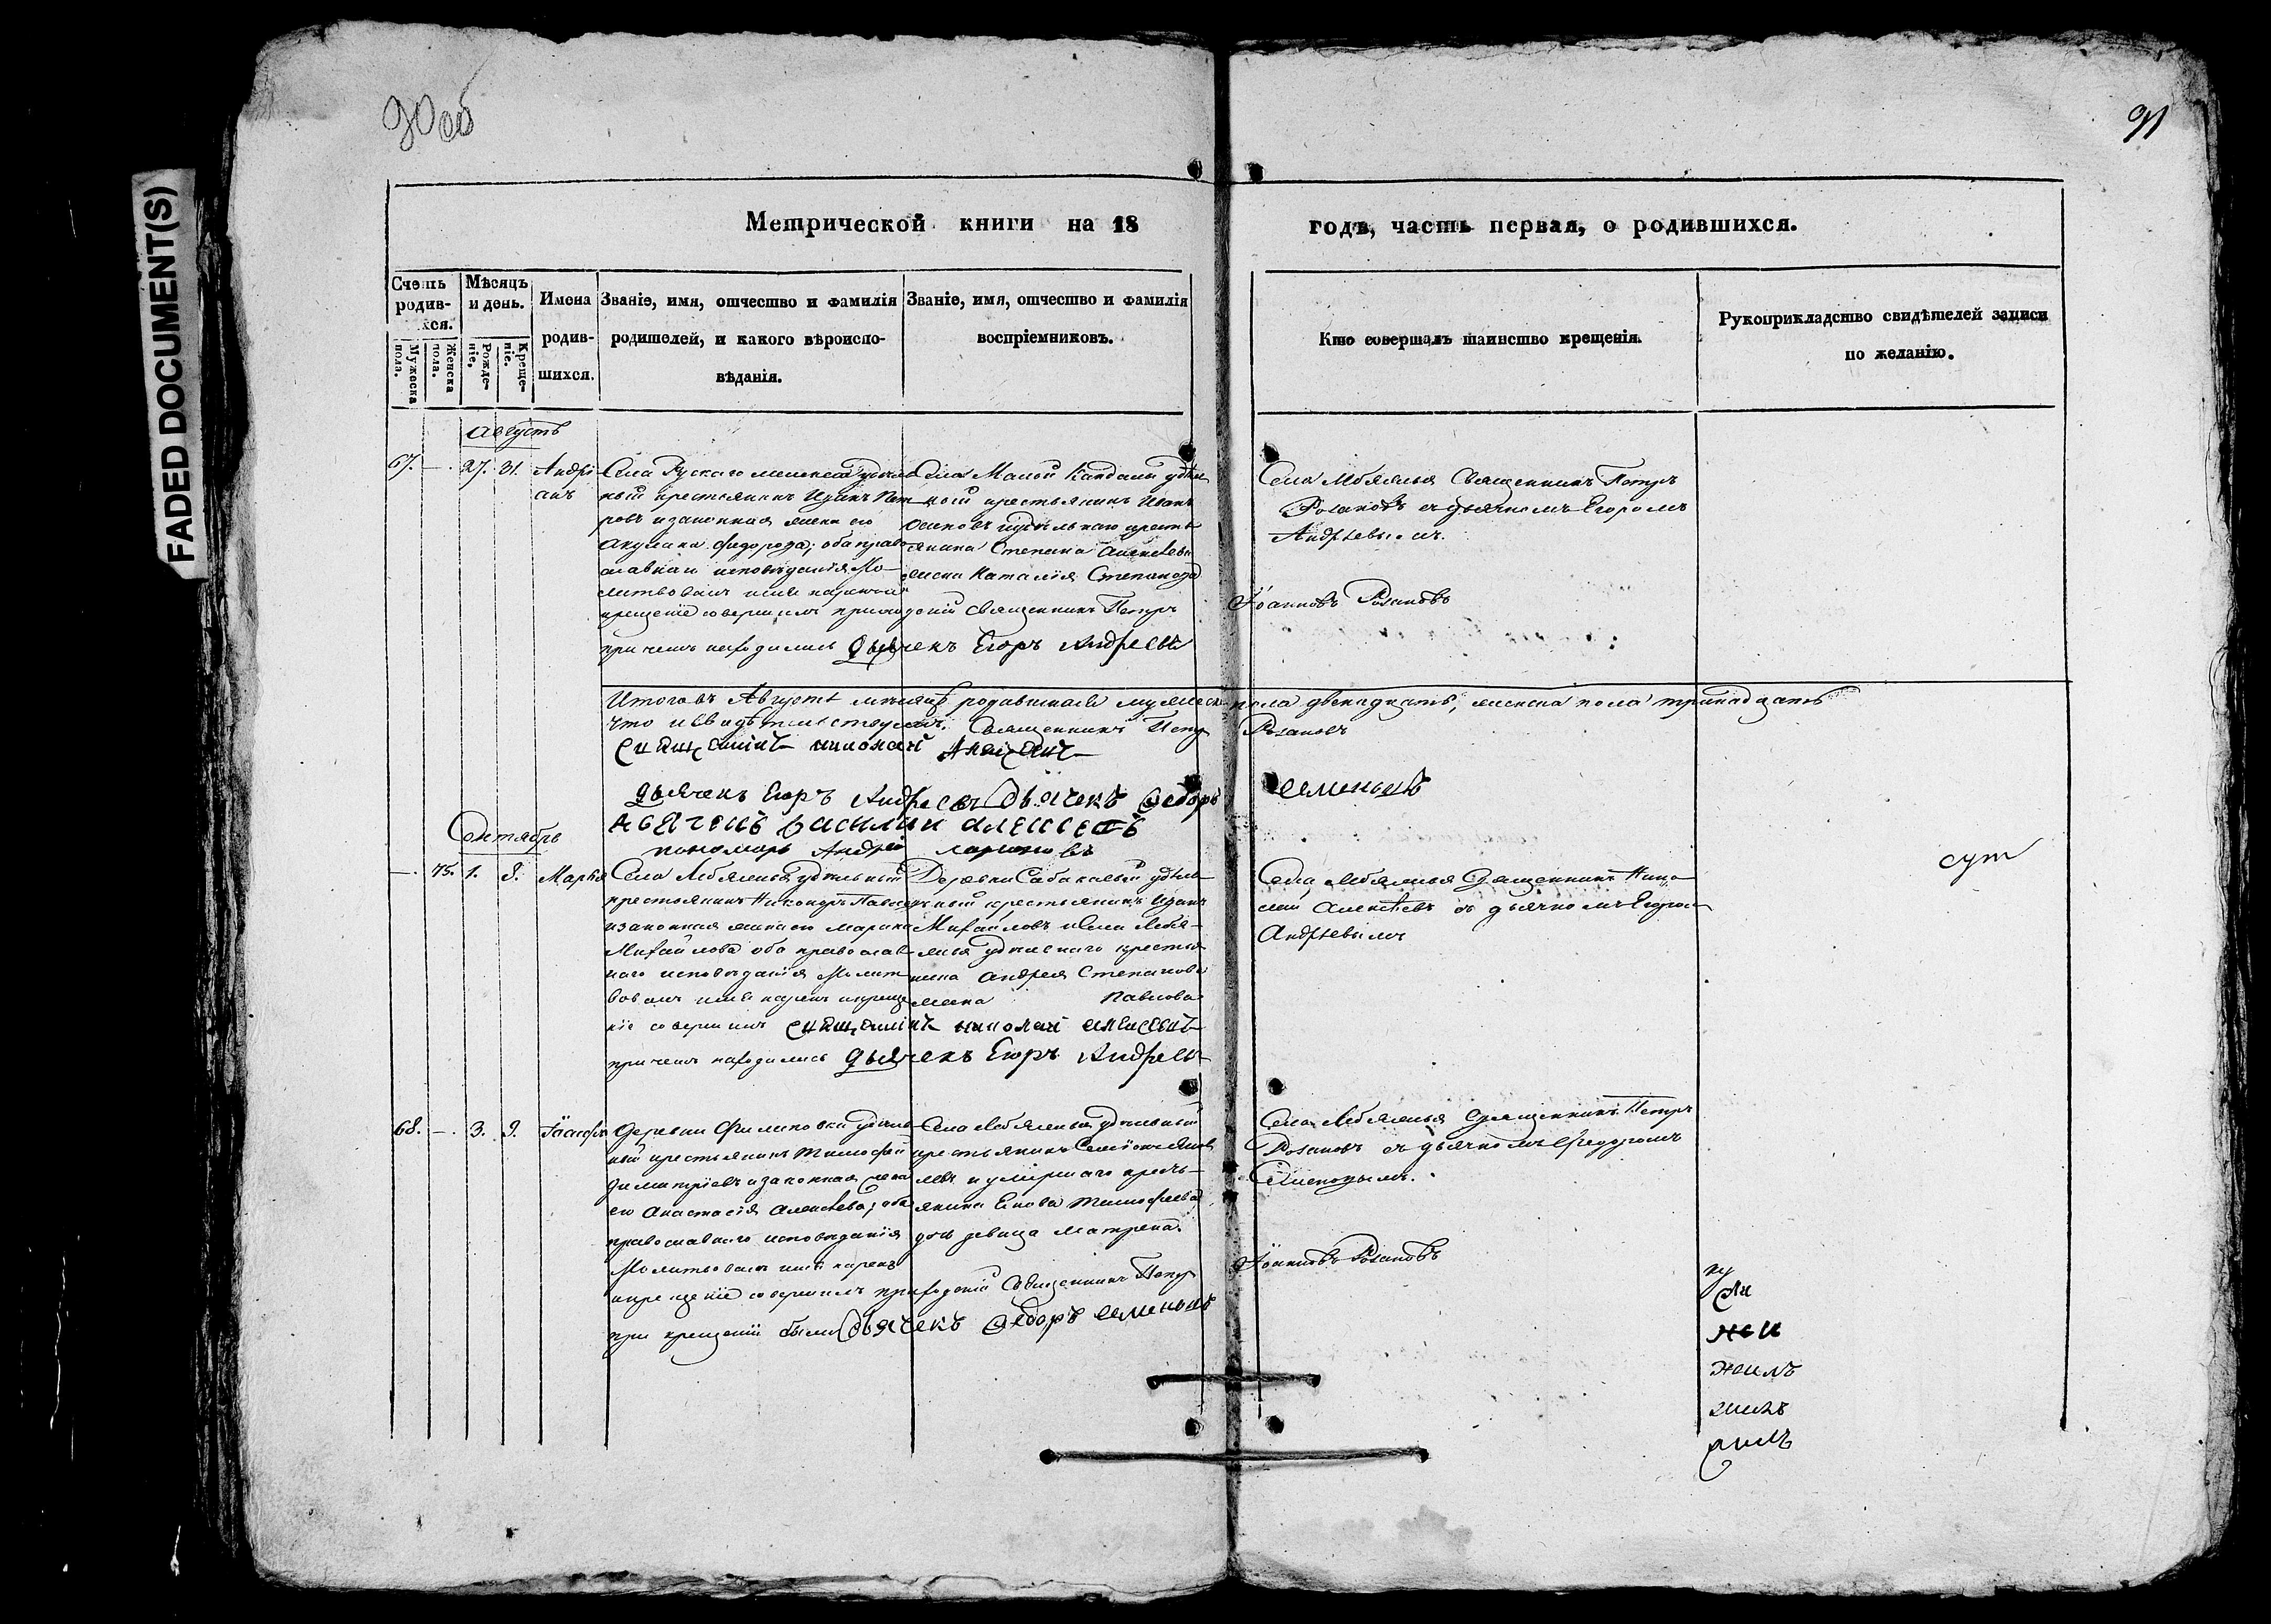 90 об
91
FADED DOCUMENT(S)
Метрической книги на 18 годъ, часть первая, о родившихся.
Счетъ родив-хся.
Мужеска пола.
Женска пола.
Мѣсяцъ и день.
Рожде-ніе.
Креще-ніе.
Имена
родив-
шихся.
Званіе, имя, отчество и фамилія
родителей, и какого вѣроиспо-
вѣданія.
Званіе, имя, отчество и фамилія
воспріемниковъ.
Кто совершалъ таинство крещенія.
Рукоприкладство свидѣтелей записи
по желанію.
Августъ
67. — 27. 31.
Андрі
анъ
Села Рускаго мелекеса удѣль
ный крестьянинъ Иванъ Пет
ровъ и законная жена его
Акулина Федорова; оба право
славнаго исповѣданія Мо-
литвовалъ имя нарекъ и
крещеніе совершилъ приходскій Священникъ Петръ
Іоанновъ Розановъ
при чемъ находились Дьячекъ Егоръ Андреевъ
Села Малой Кандалы удѣль
ный крестьянинъ Иванъ
удѣльнаго кресть
янина Степана Алексѣева
жена Наталія Степанова
Села Лебяжья Священникъ Петръ
Розановъ съ дьячкомъ Егоромъ
Андрѣевымъ.
Итого въ Августѣ мѣсяцѣ родившихся мужеска пола двенадцать, женска пола тринадцать
что и свидѣтельствуемъ: Священникъ Петръ Розановъ
Священникъ Николай Алексѣевъ
Дьячекъ Егоръ Андреевъ Дьячекъ Федоръ Семеновъ
Дьячекъ Василий Алексеевъ
пономарь Андрей Ларионовъ
Сентябрь
— 75. 1. 8. Марія
Села Лебяжья удѣльный
крестьянинъ Никаноръ Павловъ
и законная жена его Марина
Михайлова оба православ
наго исповѣданія Молит
вовалъ имя нарекъ и креще
ніе совершилъ Священникъ Николай Алексѣевъ
при чемъ находились Дьячекъ Егоръ Андреевъ
Деревни Сабакаевой удѣль
ный крестьянинъ Иванъ
Михайловъ и Села Лебя-
жья удѣльнаго крестья
нина Андрея Степанова
жена Павлова
Села Лебяжья Священникъ Нико-
лай Алексѣевъ съ дьячкомъ Егоромъ
Андрѣевымъ
68. — 3. 9. Іоасафъ
Деревни Филиповки удѣль
ный крестьянинъ Тимофей
Димитріевъ и законная жена
его Анастасія Алексѣева; оба
православнаго исповѣданія
Молитвовалъ имя нарекъ
и крещеніе совершилъ приходскій Священникъ Петръ
Іоанновъ Розановъ
при крещеніи были Дьячекъ Федоръ Семеновъ
Села Лебяжья удѣльный
крестьянинъ Семіонъ Яков
левъ и умершаго кресть-
янина Тимофеева
дочь девица Матрена.
Села Лебяжья Священникъ Петръ
Розановъ съ дьячкомъ Феодоромъ
Сименовымъ.